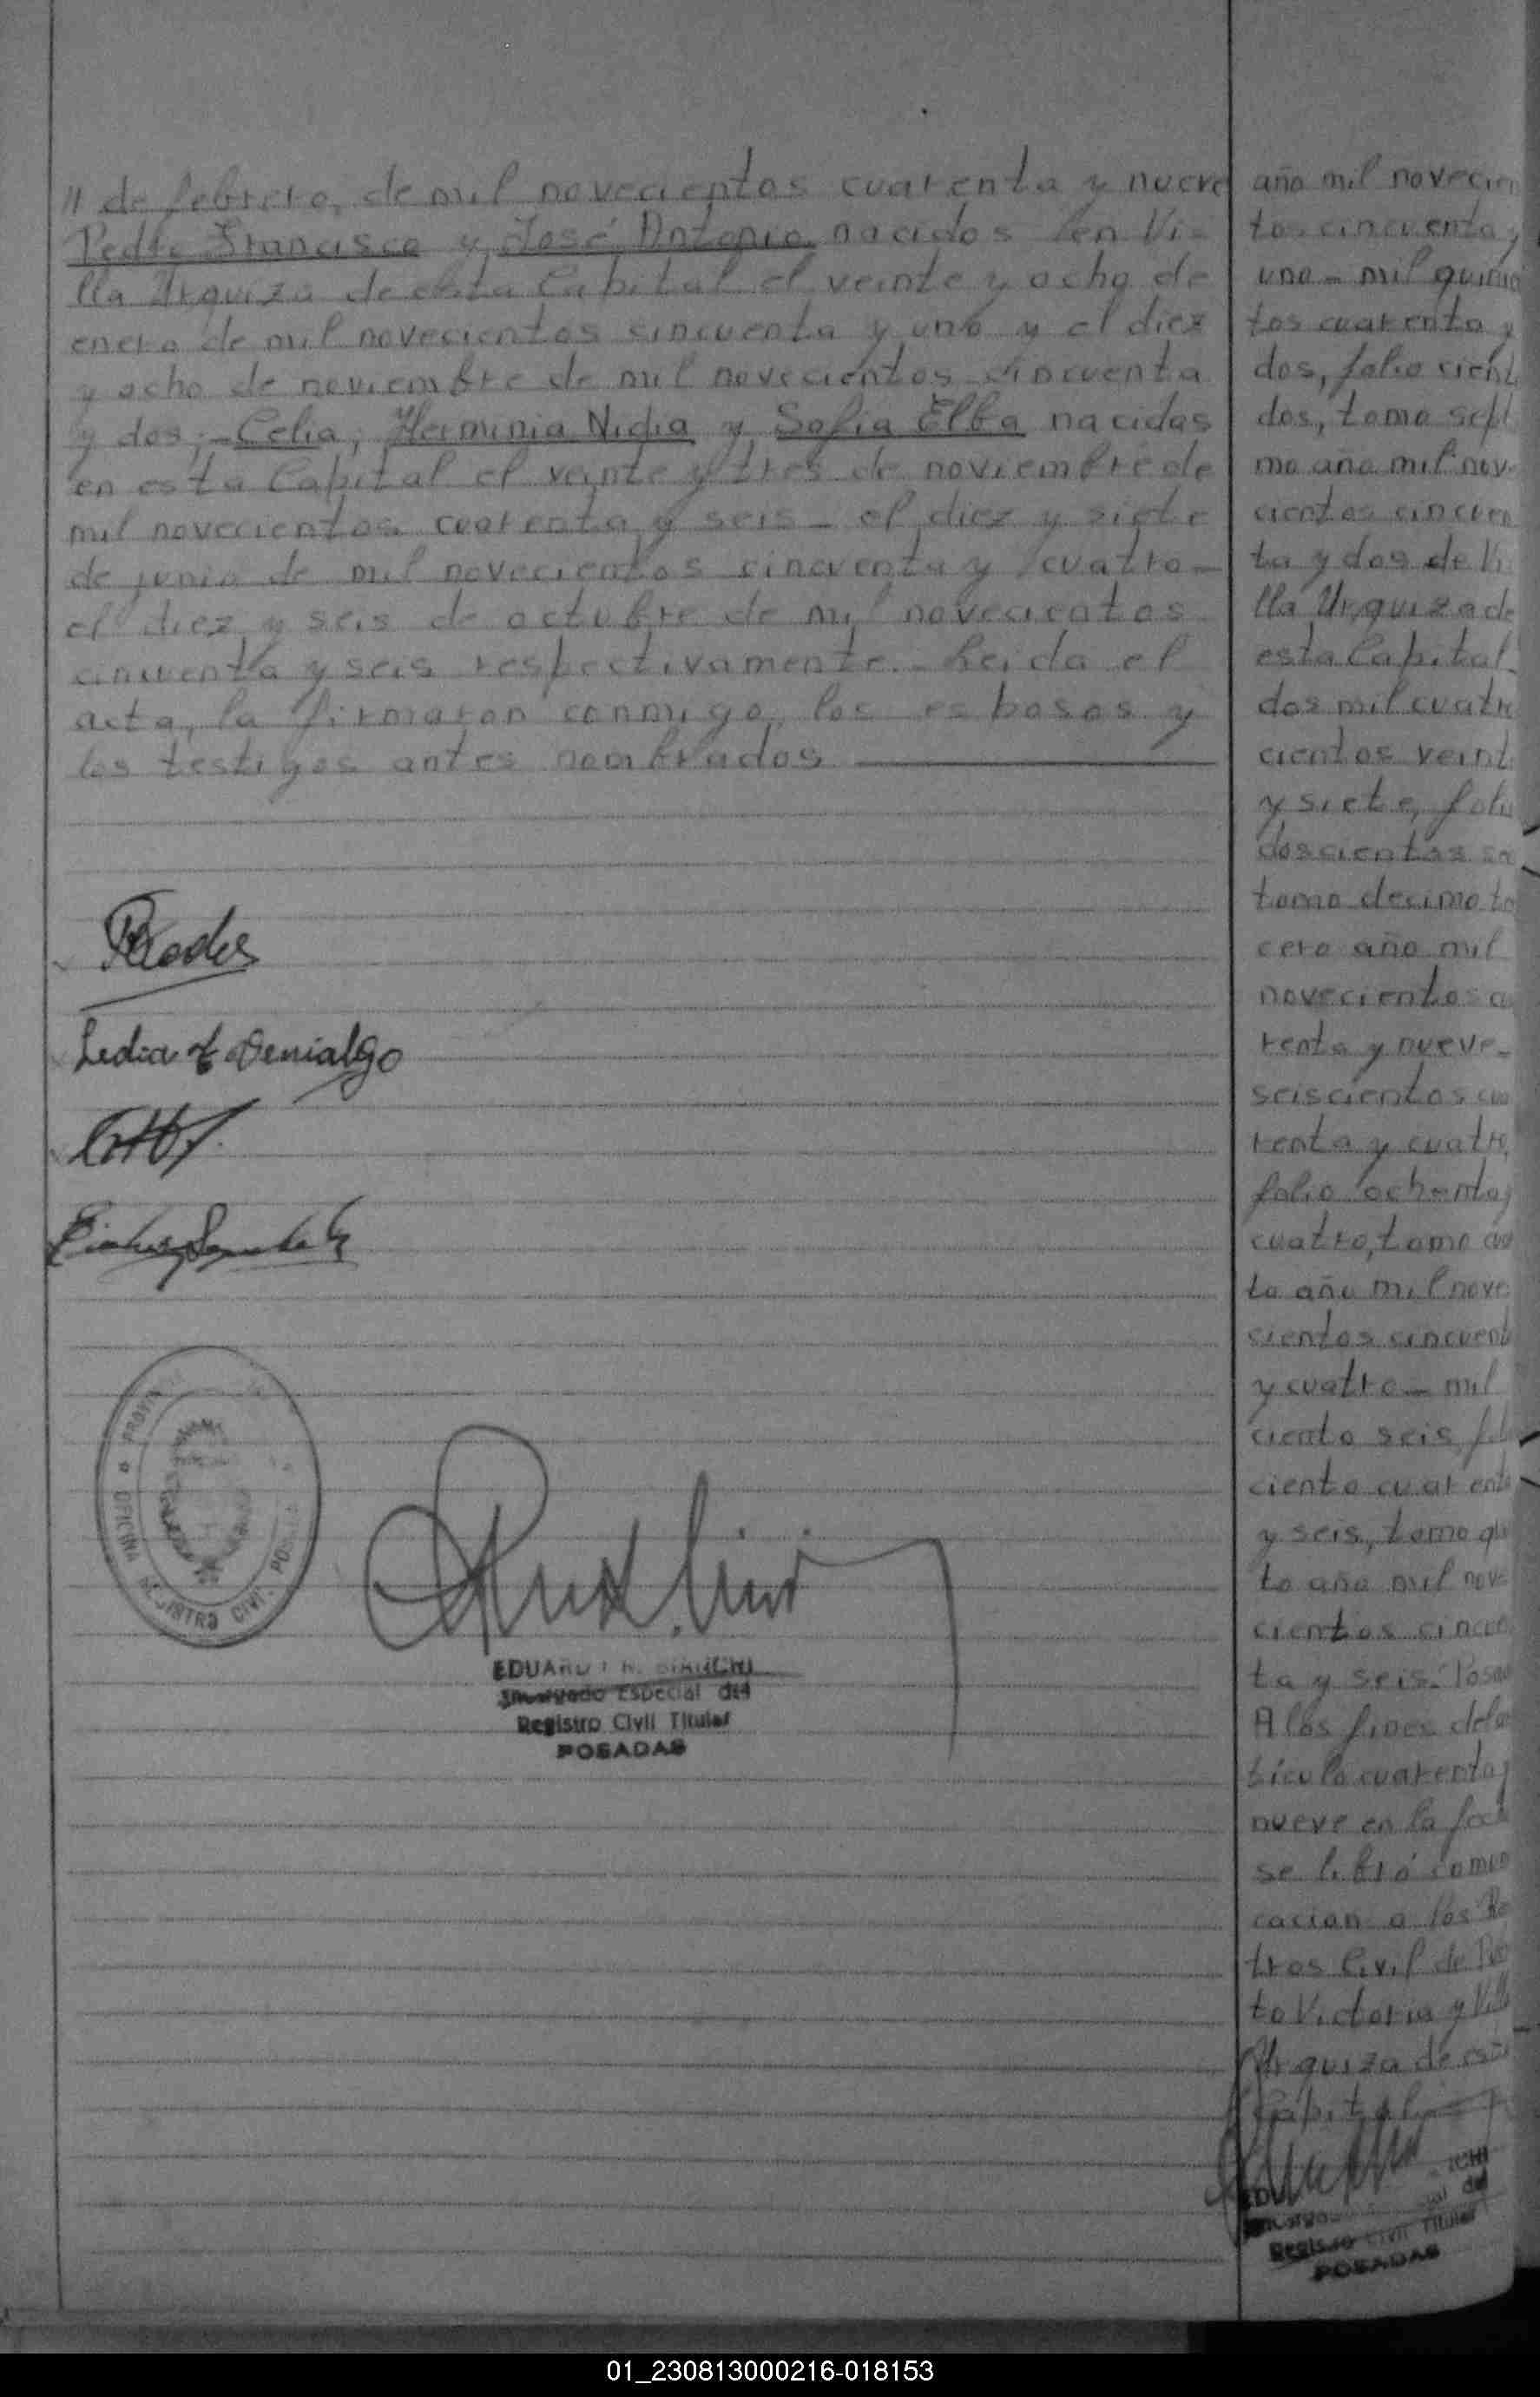 11 de febrero, de mil novecientos cuarenta y nueve
Pedro Francisco y José Antonio nacidos en Vi-
lla Urquiza de esta Capital el veinte y ocho de
enero de mil novecientos cincuenta y uno y el diez
y ocho de noviembre de mil novecientos cincuenta
y dos;- Celia, Herminia Nidia y Sofia Elba nacidas
en esta Capital el veinte y tres de noviembre de
mil novecientos cuarenta y seis - el diez y siete
de junio de mil novecientos cincuenta y cuatro -
el diez y seis de octubre de mil novecientos
cincuenta y seis respectivamente.- Leida el
acta, la firmaron conmigo, los esposos y
los testigos antes nombrados
Lidia
OFICINA REGISTRO CIVIL POSADAS
EDUARDO R. BIANCHI
Encargado Especial del
Registro Civil Titular
POSADAS
año mil novecien
tos cincuenta y
uno - mil quinien
tos cuarenta y
dos, folio cient
dos, tomo sept
mo año mil nove
cientos cincuen
ta y dos de Vi
lla Urquiza de
esta Capital -
dos mil cuatro
cientos veint
y siete, folio
doscientos
tomo decimo te
cero año mil
novecientos
renta y nueve -
seiscientos cua
renta y cuatro,
folio ochenta y
cuatro, tomo cua
to año mil nove
cientos cincuent
y cuatro - mil
ciento seis, fol
ciento cuarenta
y seis, tomo qui
to año mil nove
cientos cincuen
ta y seis. Posad
A los fines del ar
ticulo cuarenta y
nueve en la fecha
se libró comun
cacion a los Re
tros Civil de Pue
to Victoria y Villa
Urquiza de esta
Capital
Registro Civil Titular
POSADAS
01_230813000216-018153